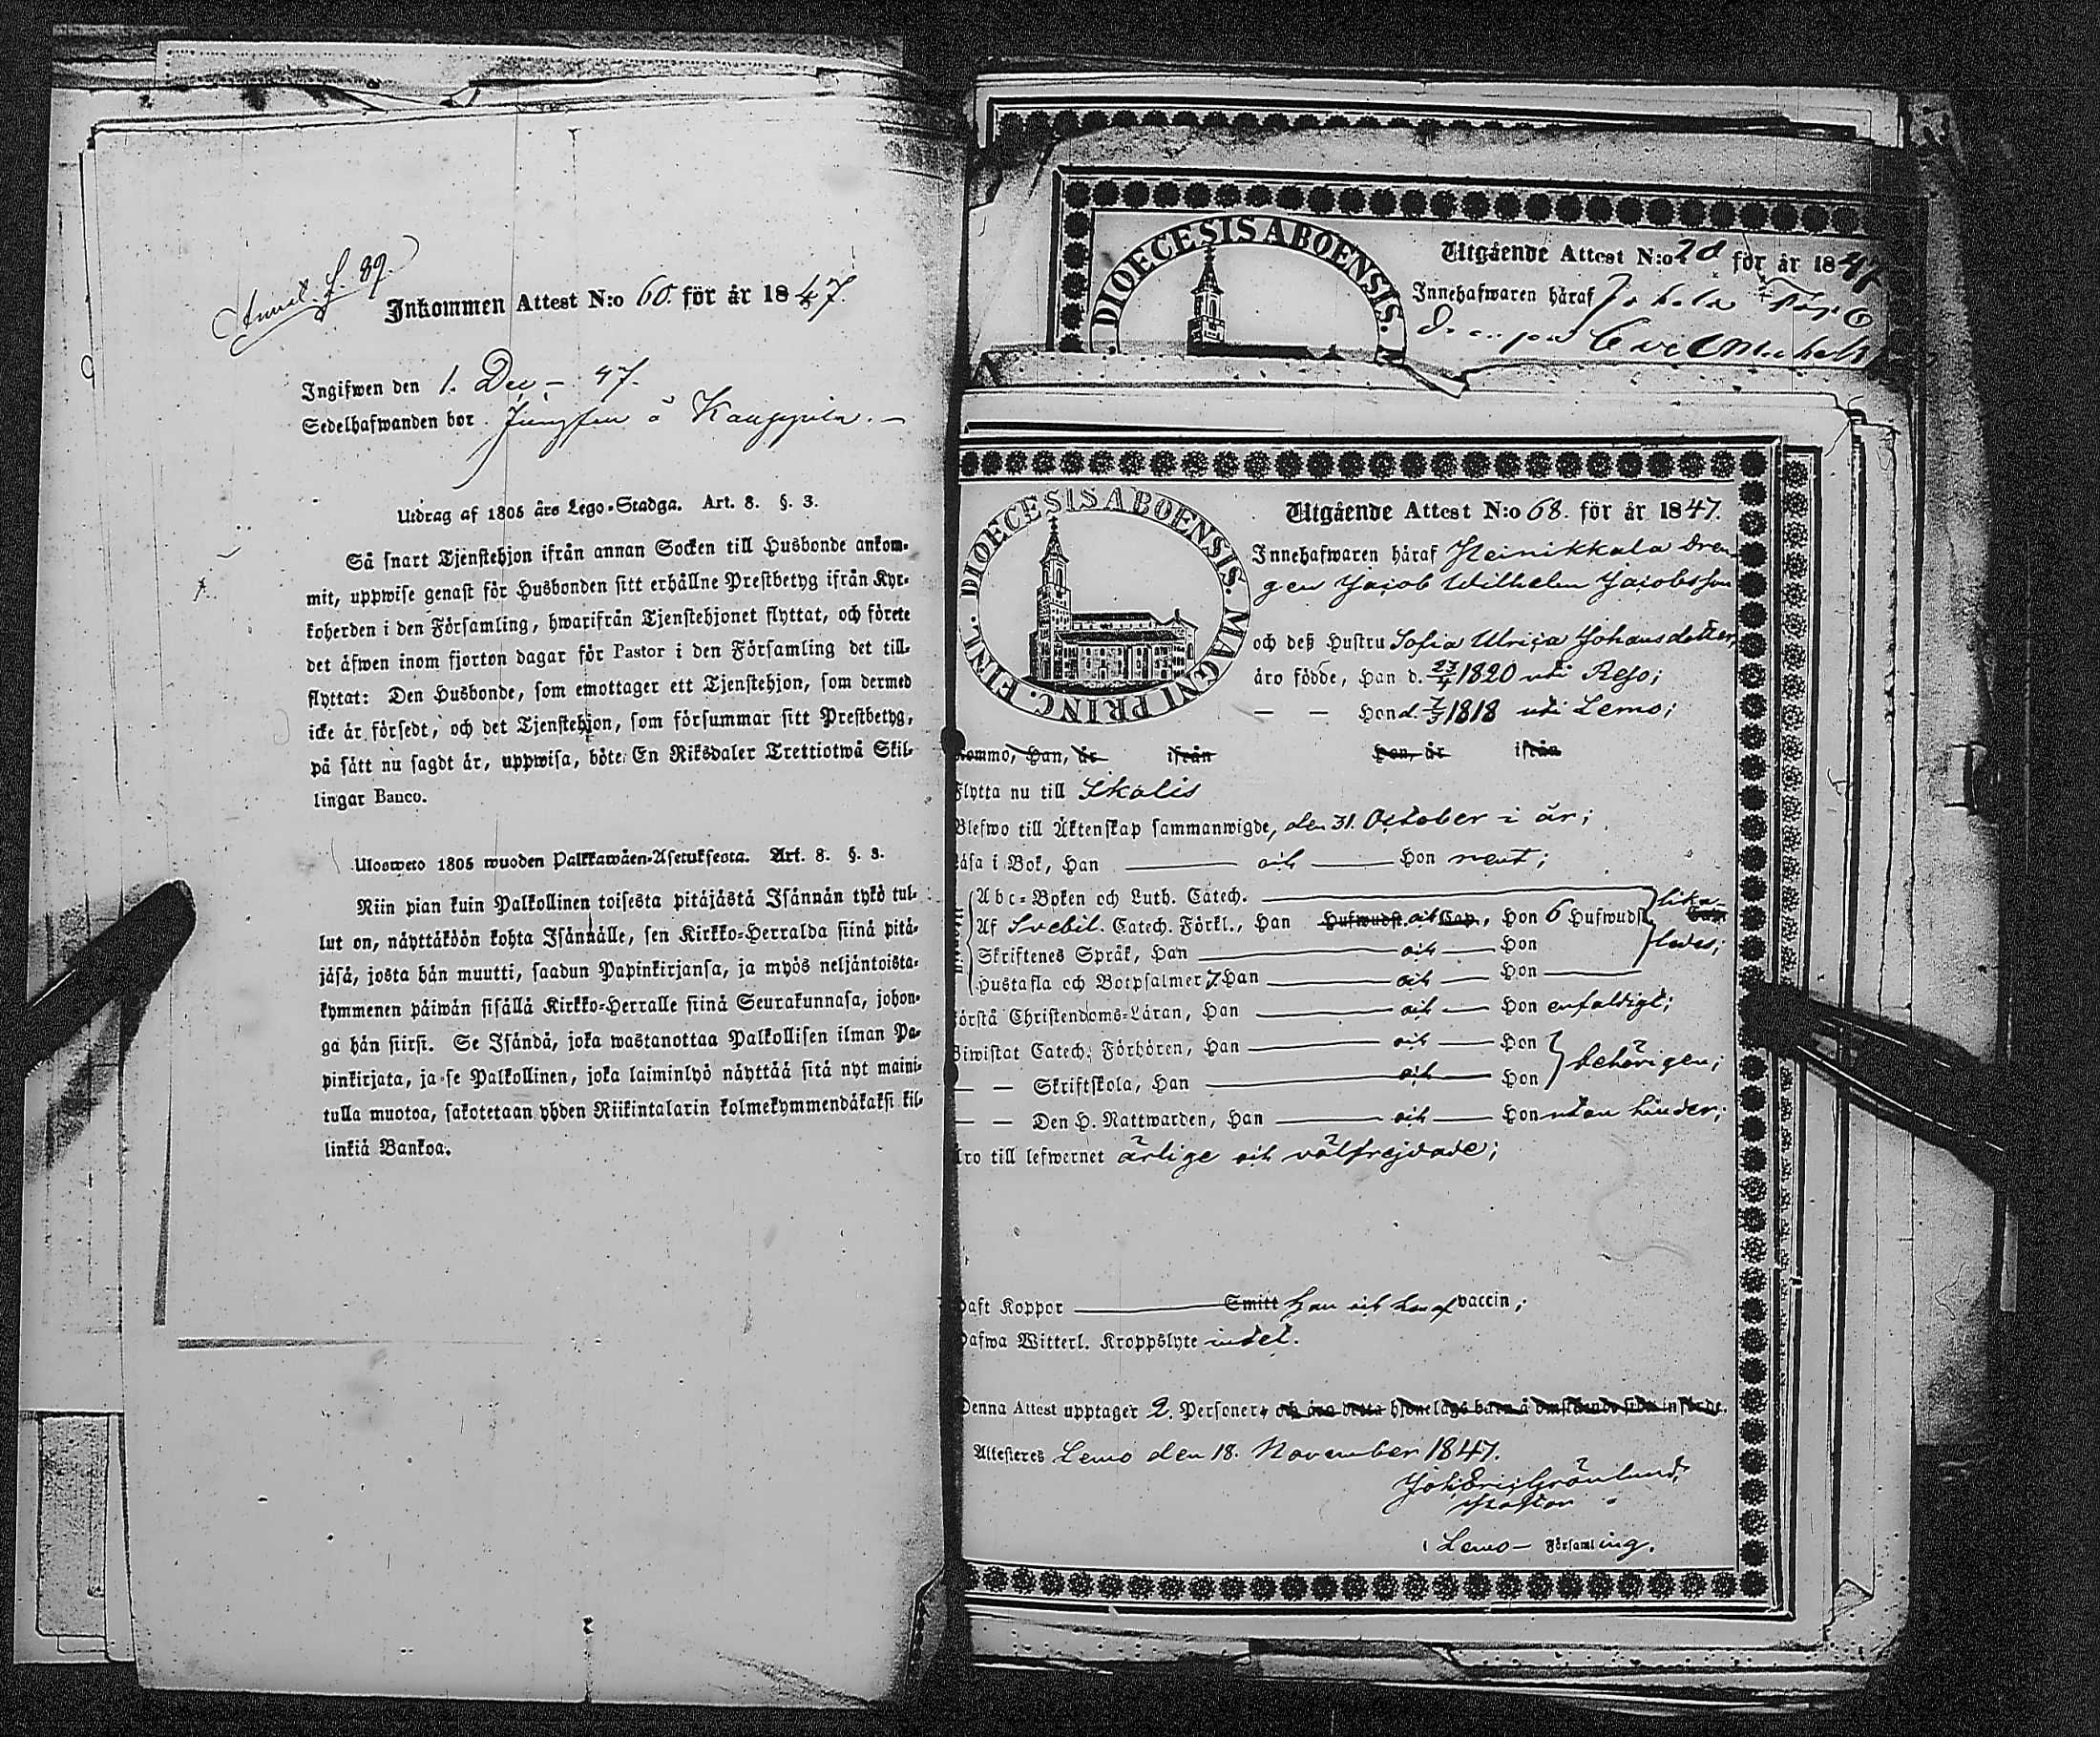 Annot. f. 89.
Inkommen Attest N:o 60. för år 1847.
Ingifwen den 1. Dec. – 47.
Sedelhafwanden bor å
Utdrag af 1805 års Lego-Stadga. Art. 8. §. 3.
Så snart Tjenstehjon ifrån annan Socken till Husbonde ankom-
mit, uppwise genast för Husbonden sitt erhållne Prestbetyg ifrån Kyr-
koherden i den Församling, hwarifrån Tjenstehjonet flyttat, och förete
det äfwen inom fjorton dagar för Pastor i den Församling det till-
flyttat: Den Husbonde, som emottager ett Tjenstehjon, som dermed
icke är försedt, och det Tjenstehjon, som försummar sitt Prestbetyg,
på sätt nu sagdt är, uppwisa, böte: En Riksdaler Trettiotwå Skil-
lingar Banco.
Ulosweto 1805 wuoden Palkkawäen-Asetuksesta. Art. 8. §. 3.
Niin pian kuin Palkollinen toisesta pitäjästä Isännän tykö tul-
lut on, näyttäköön kohta Isännälle, sen Kirkko-Herralda siinä pitä-
jäsä, josta hän muutti, saadun Papinkirjansa, ja myös neljäntoista-
kymmenen päiwän sisällä Kirkko-Herralle siinä Seurakunnasa, johon-
ga hän siirsi. Se Isändä, joka wastanottaa Palkollisen ilman Pa-
pinkirjata, ja se Palkollinen, joka laiminlyö näyttää sitä nyt maini-
tulla muotoa, sakotetaan yhden Riikintalarin kolmekymmendäkaksi kil-
linkiä Bankoa.
DIOECESIS ABOENSIS. M
Utgående Attest N:o 28 för år 1847
Innehafwaren häraf
DIOECESIS ABOENSIS. MAGNI PRINC. FINL.
Utgående Attest N:o 68. för år 1847.
Innehafwaren häraf Heinikkala dren-
gen Jacob Wilhelm Jacobsson
och deß Hustru Sofia Ulrica Johansdotter,
äro födde, Han d. 1820 uti Reso;
— — Hon d. 1818 uti Lemo;
kommo, Han, är ifrån Hon, är ifrån
Flytta nu till Ikalis
Blefwo till Äktenskap sammanwigde, den 31. October i år;
Läsa i Bok, Han — och — Hon rent;
Abc-Boken och Luth. Catech. — lika-
Af Svebil. Catech. Förkl., Han Hufwudst. och Cap., Hon 6 Hufwudst. Cap.
Skriftenes Språk, Han — och — Hon ledes;
Hustafla och Botpsalmer 7. Han — och — Hon —
förstå Christendoms-Läran, Han — och — Hon enfaldigt;
Biwistat Catech. Förhören, Han — och — Hon
— — Skriftskola, Han — och — Hon behörigen;
— — Den H. Nattwarden, Han — och — Hon utan hinder;
Äro till lefwernet ärlige och välfrejdade;
Haft Koppor — Smitt han och hon af vaccin;
Hafwa Witterl. Kroppslyte intet.
Denna Attest upptager 2. Personer, och äro detta hjonelags barn å omstående sida införde.
Attesteras Lemo den 18. November 1847.
Joh. Eric Grönlund,
Pastor
i Lemo – Församling.